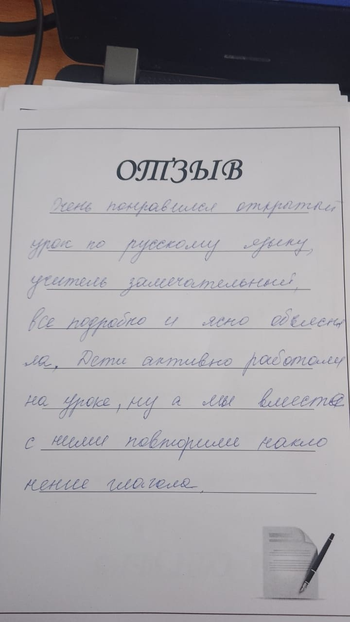 ОТЗЫВ
Очень понравился открытый
урок по русскому языку,
учитель замечательный,
все подробно и ясно объясня
ла. Дети активно работали
на уроке, ну а мы вместе
с ними повторили накло
нение глагола.